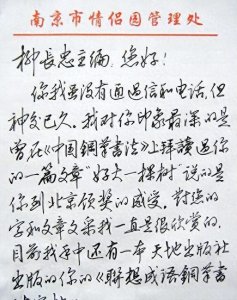 南京市情侣园管理处
柳長忠主编：您好！
你我虽没有通过信和电话，但
神交已久。我对你印象最深的是
曾在《中国鋼筆書法》上拜讀過你
的一篇文章“好大一棵树”说的是
你到北京领奖的感受。對您的
字和文章文采我一直是很欣赏的。
目前我手中还有一本天地出版社
出版的你的《联想成语鋼筆書